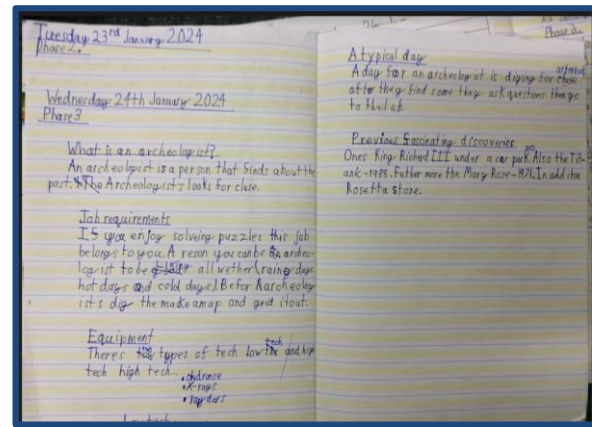 Tuesday 23rd January 2024
Phase 2.
Wednesday 24th January 2024
Phase 3
What is an archeologist?
An archeologist is a person that finds about the
past. The Archeologist's looks for cluse.
Job requirements
If you enjoy solveing puzzles this job
belongs to you. A reson you can be A archeo-
logist to be all wether (rainy days
hot days and cold days). Befor A archeolog
ist's dig the make a map and grid it out.
Equipment
There's types of tech low tech and high
tech high tech
• drdronse
• x-rays
• raydars
Low tech
A typical day
A day for an archeologist is diging for artefact
after they find some they ask questions then go
to the lab.
Previous fascinating discoveries
Ones King Richard III under a car park. Also the Tit-
anic-1985. Futher more the Mary Rose-1971. In addition
Rosetta stone.
Phase 2